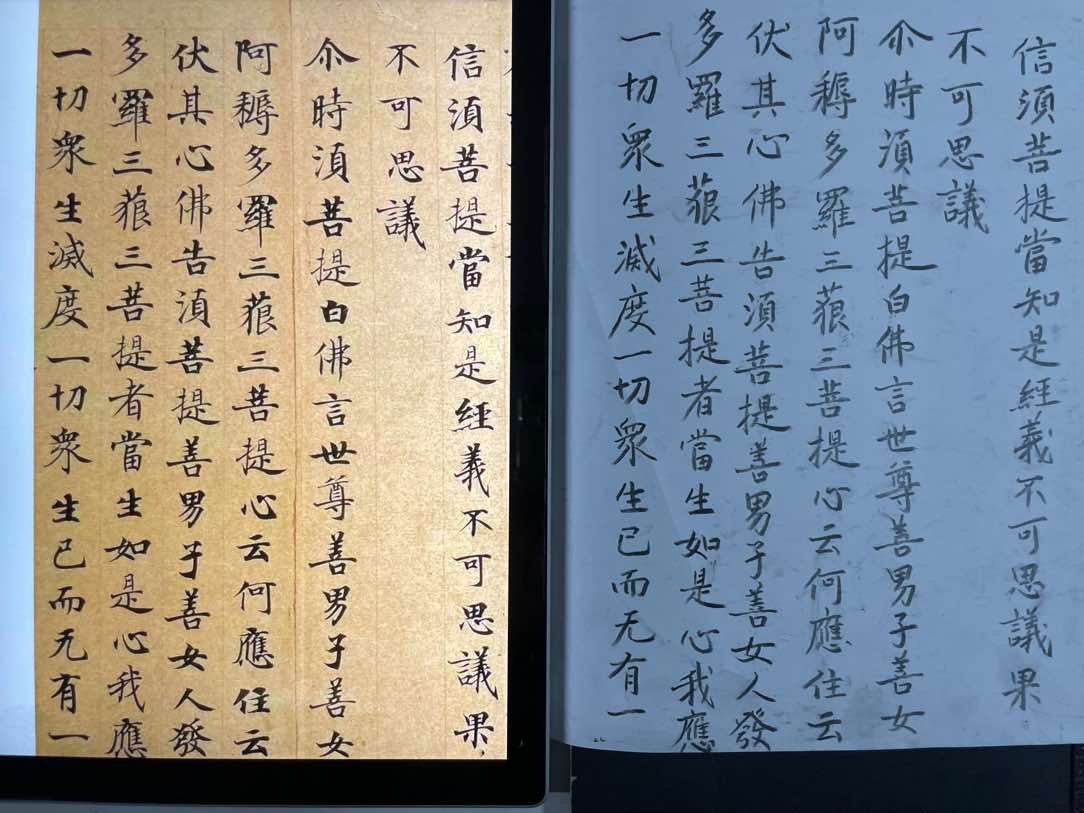 信須菩提當知是經義不可思議果
不可思議
尒時須菩提白佛言世尊善男子善女
阿耨多羅三藐三菩提心云何應住云
伏其心佛告須菩提善男子善女人發
多羅三藐三菩提者當生如是心我應
一切衆生滅度一切衆生已而无有一
信須菩提當知是經義不可思議果
不可思議
尒時須菩提白佛言世尊善男子善女
阿耨多羅三藐三菩提心云何應住云
伏其心佛告須菩提善男子善女人發
多羅三藐三菩提者當生如是心我應
一切衆生滅度一切衆生已而无有一